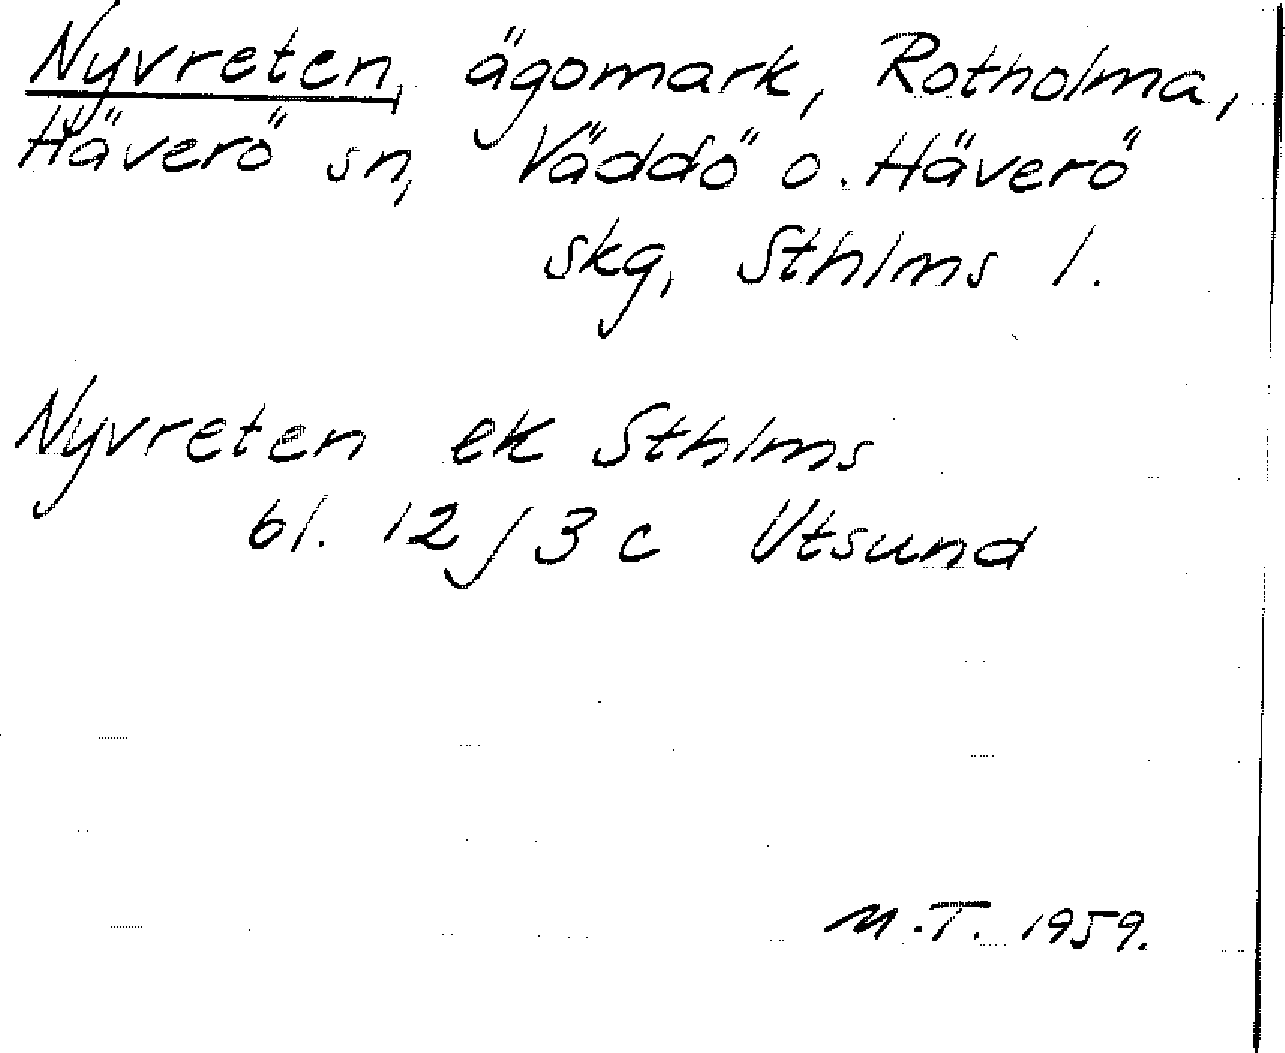 Nyvreten, ägomark, Rotholma,
Häverö sn, Väddö o. Häverö
skg, Sthlms l.
Nyvreten ek Sthlms
bl. 12/3 c Utsund
M.T. 1959.